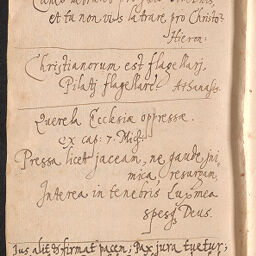 et tu non vis latrare pro Christo?
Hieron:
Christianorum est flagellarj,
Pilatj flagellare. Athanasi.
Querela Ecclesiæ oppressæ.
ex cap: 7. Mich:
Pressa licet jaceam, ne gaude, ini-
mica resurgam,
Interea in tenebris Lux mea
spesq Deus.
Jus alit & firmat pacem; Pax jura tuetur;